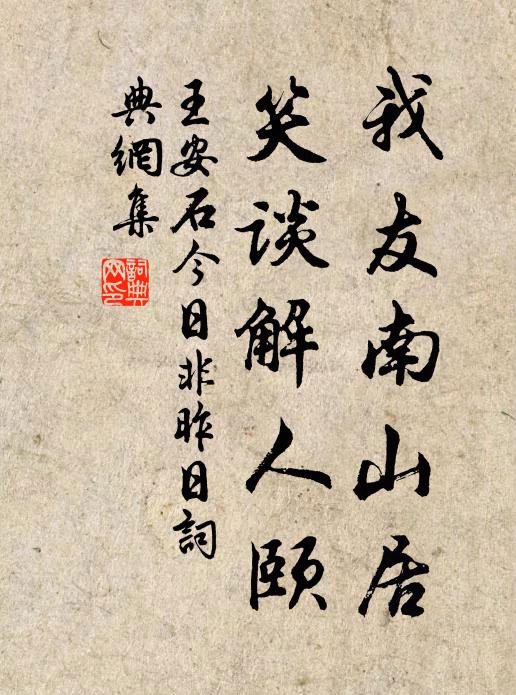 我友南山居
笑談解人頤
王安石今日非昨日詞
典網集
詞典
网印